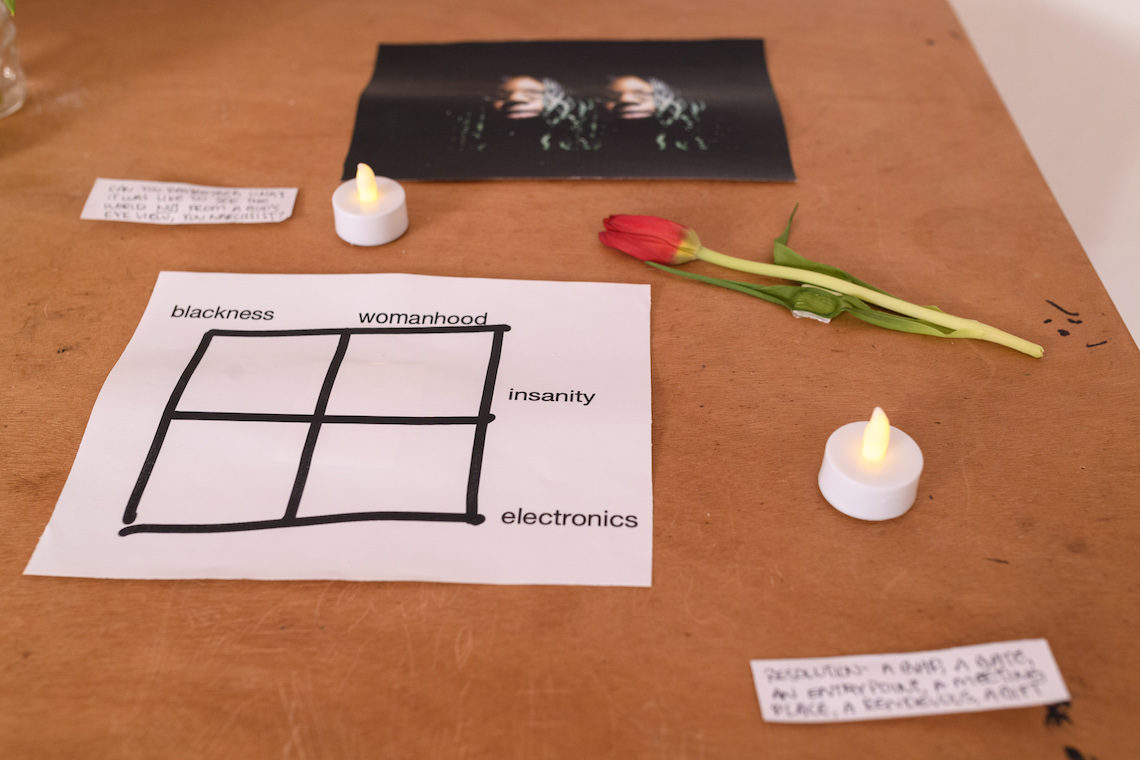 CAN YOU REMEMBER WHAT
IT WAS LIKE TO SEE THE
WORLD NOT FROM A GOD'S
EYE VIEW, YOU NARCISSIST?
blackness womanhood
insanity
electronics
RESOLUTION- A A GATE,
AN ENTRYPOINT, A MEETING
PLACE, A RENDEVOUS, A